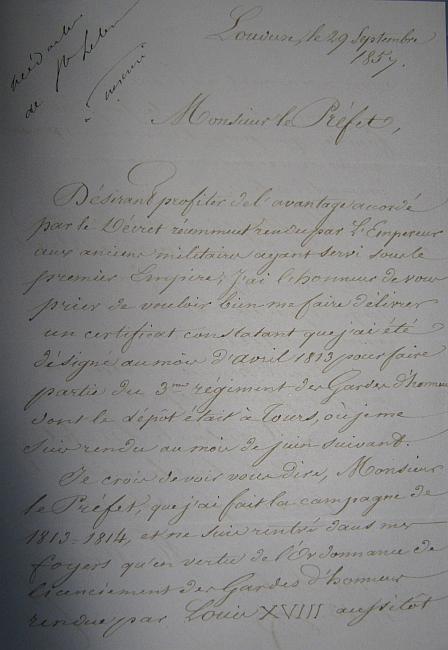 Louviers, le 29 Septembre
1857.
de Ste Helene
Monsieur le Préfet,
Désirant profiter de l'avantage accordé
par le Décret récemment rendu par l'Empereur
aux anciens militaires ayant servi sous le
premier Empire, j'ai l'honneur de vous
prier de vouloir bien me faire délivrer
un certificat constatant que j'ai été
désigné au mois d'avril 1813 pour faire
partie du 3me régiment des Gardes d'honneur
dont le dépôt était à Tours, où je me
suis rendu au mois de juin suivant.
Je crois devoir vous dire, Monsieur
le Préfet, que j'ai fait la campagne de
1813-1814, et ne suis rentré dans mes
foyers qu'en vertu de l'Ordonnance de
licenciement des Gardes d'honneur
rendue par Louis XVIII aussitôt